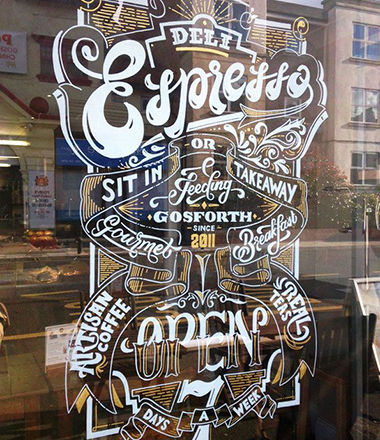 DELI
Espresso
SIT IN OR TAKEAWAY
Feeding
GOSFORTH
SINCE
Gourmet 2011 Breakfast
ARTNISAN COFFEE
REAL TEAS
OPEN
7
DAYS A WEEK